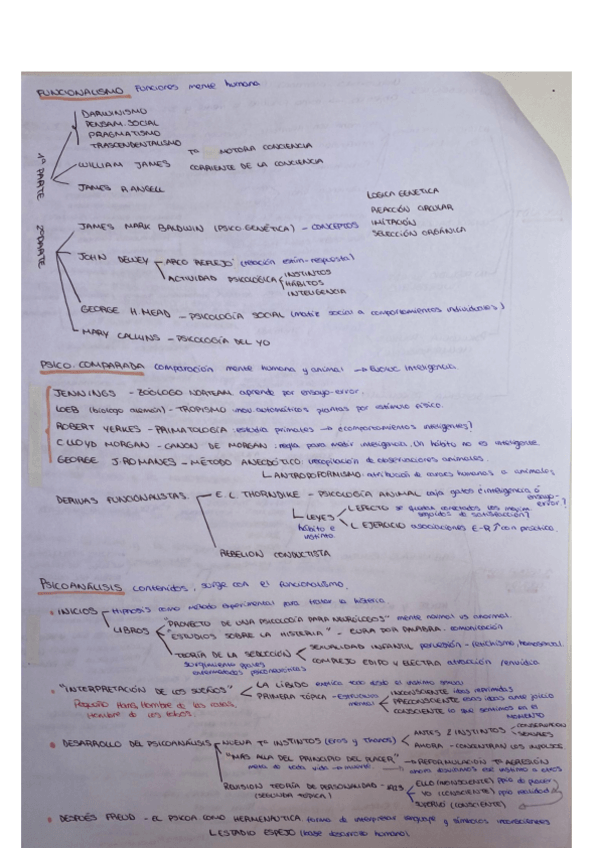 FUNCIONALISMO Funciones mente humana
DARWINISMO
PENSAM. SOCIAL
PRAGMATISMO
TRASCENDENTALISMO
1ª PARTE
WILLIAM JAMES
Tª MOTORA CONCIENCIA
CORRIENTE DE LA CONCIENCIA
JAMES R. ANGELL
2ª PARTE
JAMES MARK BALDWIN (PSICO GENÉTICA) - CONCEPTOS
LOGICA GENETICA
REACCIÓN CIRCULAR
IMITACIÓN
SELECCIÓN ORGÁNICA
JOHN DEWEY - ARCO REFLEJO (reacción estím-respuesta)
ACTIVIDAD PSICOLÓGICA
INSTINTOS
HÁBITOS
INTELIGENCIA
GEORGE H MEAD - PSICOLOGÍA SOCIAL (matiz social a comportamientos individuales)
MARY CALKINS - PSICOLOGÍA DEL YO
PSICO. COMPARADA comparación mente humana y animal → Evoluc. Inteligencia.
JENNINGS - ZOÓLOGO NORTEAM. aprende por ensayo-error.
LOEB (biólogo alemán) - TROPISMO mov. automáticos plantas por estímulo físico.
ROBERT YERKES - PRIMATOLOGÍA: estudia primates → ¿comportamientos inteligentes?
C. LLOYD MORGAN - CANON DE MORGAN: regla para medir inteligencia. Un hábito no es inteligente.
GEORGE J. ROMANES - MÉTODO ANECDÓTICO: recopilación de observaciones animales.
ANTROPOFORMISMO: atribución de caract humanas a animales
DERIVAS FUNCIONALISTAS.
E. L THORNDIKE - PSICOLOGÍA ANIMAL caja gatos ¿inteligencia ó ensayo-error?
LEYES
hábito e instinto.
EFECTO se quedan conectadas las mejores seguidas de satisfacción?
EJERCICIO asociaciones E-R ↑ con práctica.
REBELION CONDUCTISTA
PSICOANÁLISIS contenidos, surge con el funcionalismo.
INICIOS
Hipnosis como método experimental para tratar la histeria
LIBROS
"PROYECTO DE UNA PSICOLOGÍA PARA NEURÓLOGOS" mente normal vs anormal.
"ESTUDIOS SOBRE LA HISTERIA" - CURA POR PALABRA. comunicación
TEORÍA DE LA SEDUCCIÓN
SEXUALIDAD INFANTIL perversión - fetichismo, homosexual.
COMPLEJO EDIPO Y ELECTRA atracción / envidia
"INTERPRETACIÓN DE LOS SUEÑOS"
LA LÍBIDO explica todo desde el instinto sexual
Pequeño Hans, Hombre de las ratas, Hombre de los lobos.
PRIMERA TÓPICA - ESTRUCTURA mental
INCONSCIENTE ideas reprimidas
PRECONSCIENTE otras ideas ante juicio
CONSCIENTE lo que sentimos en el MOMENTO
DESARROLLO DEL PSICOANÁLISIS
NUEVA Tª INSTINTOS (eros y thanos)
ANTES 2 INSTINTOS
CONSERVACIÓN
SEXUALES
AHORA - CONCENTRAN LOS IMPULSOS
"MAS ALLA DEL PRINCIPIO DEL PLACER" → REFORMULACIÓN Tª AGRESIÓN
meta de toda vida → muerte
REVISION TEORÍA DE PERSONALIDAD
(SEGUNDA TOPICA)
ELLO (INCONSCIENTE) ppio de placer
YO (CONSCIENTE) ppio realidad
SUPERYO (CONSCIENTE)
DESPUÉS FREUD - EL PSICOA COMO HERMENEUTICA. forma de interpretar lenguaje y símbolos inconscientes
ESTADIO ESPEJO (base desarrollo humano)